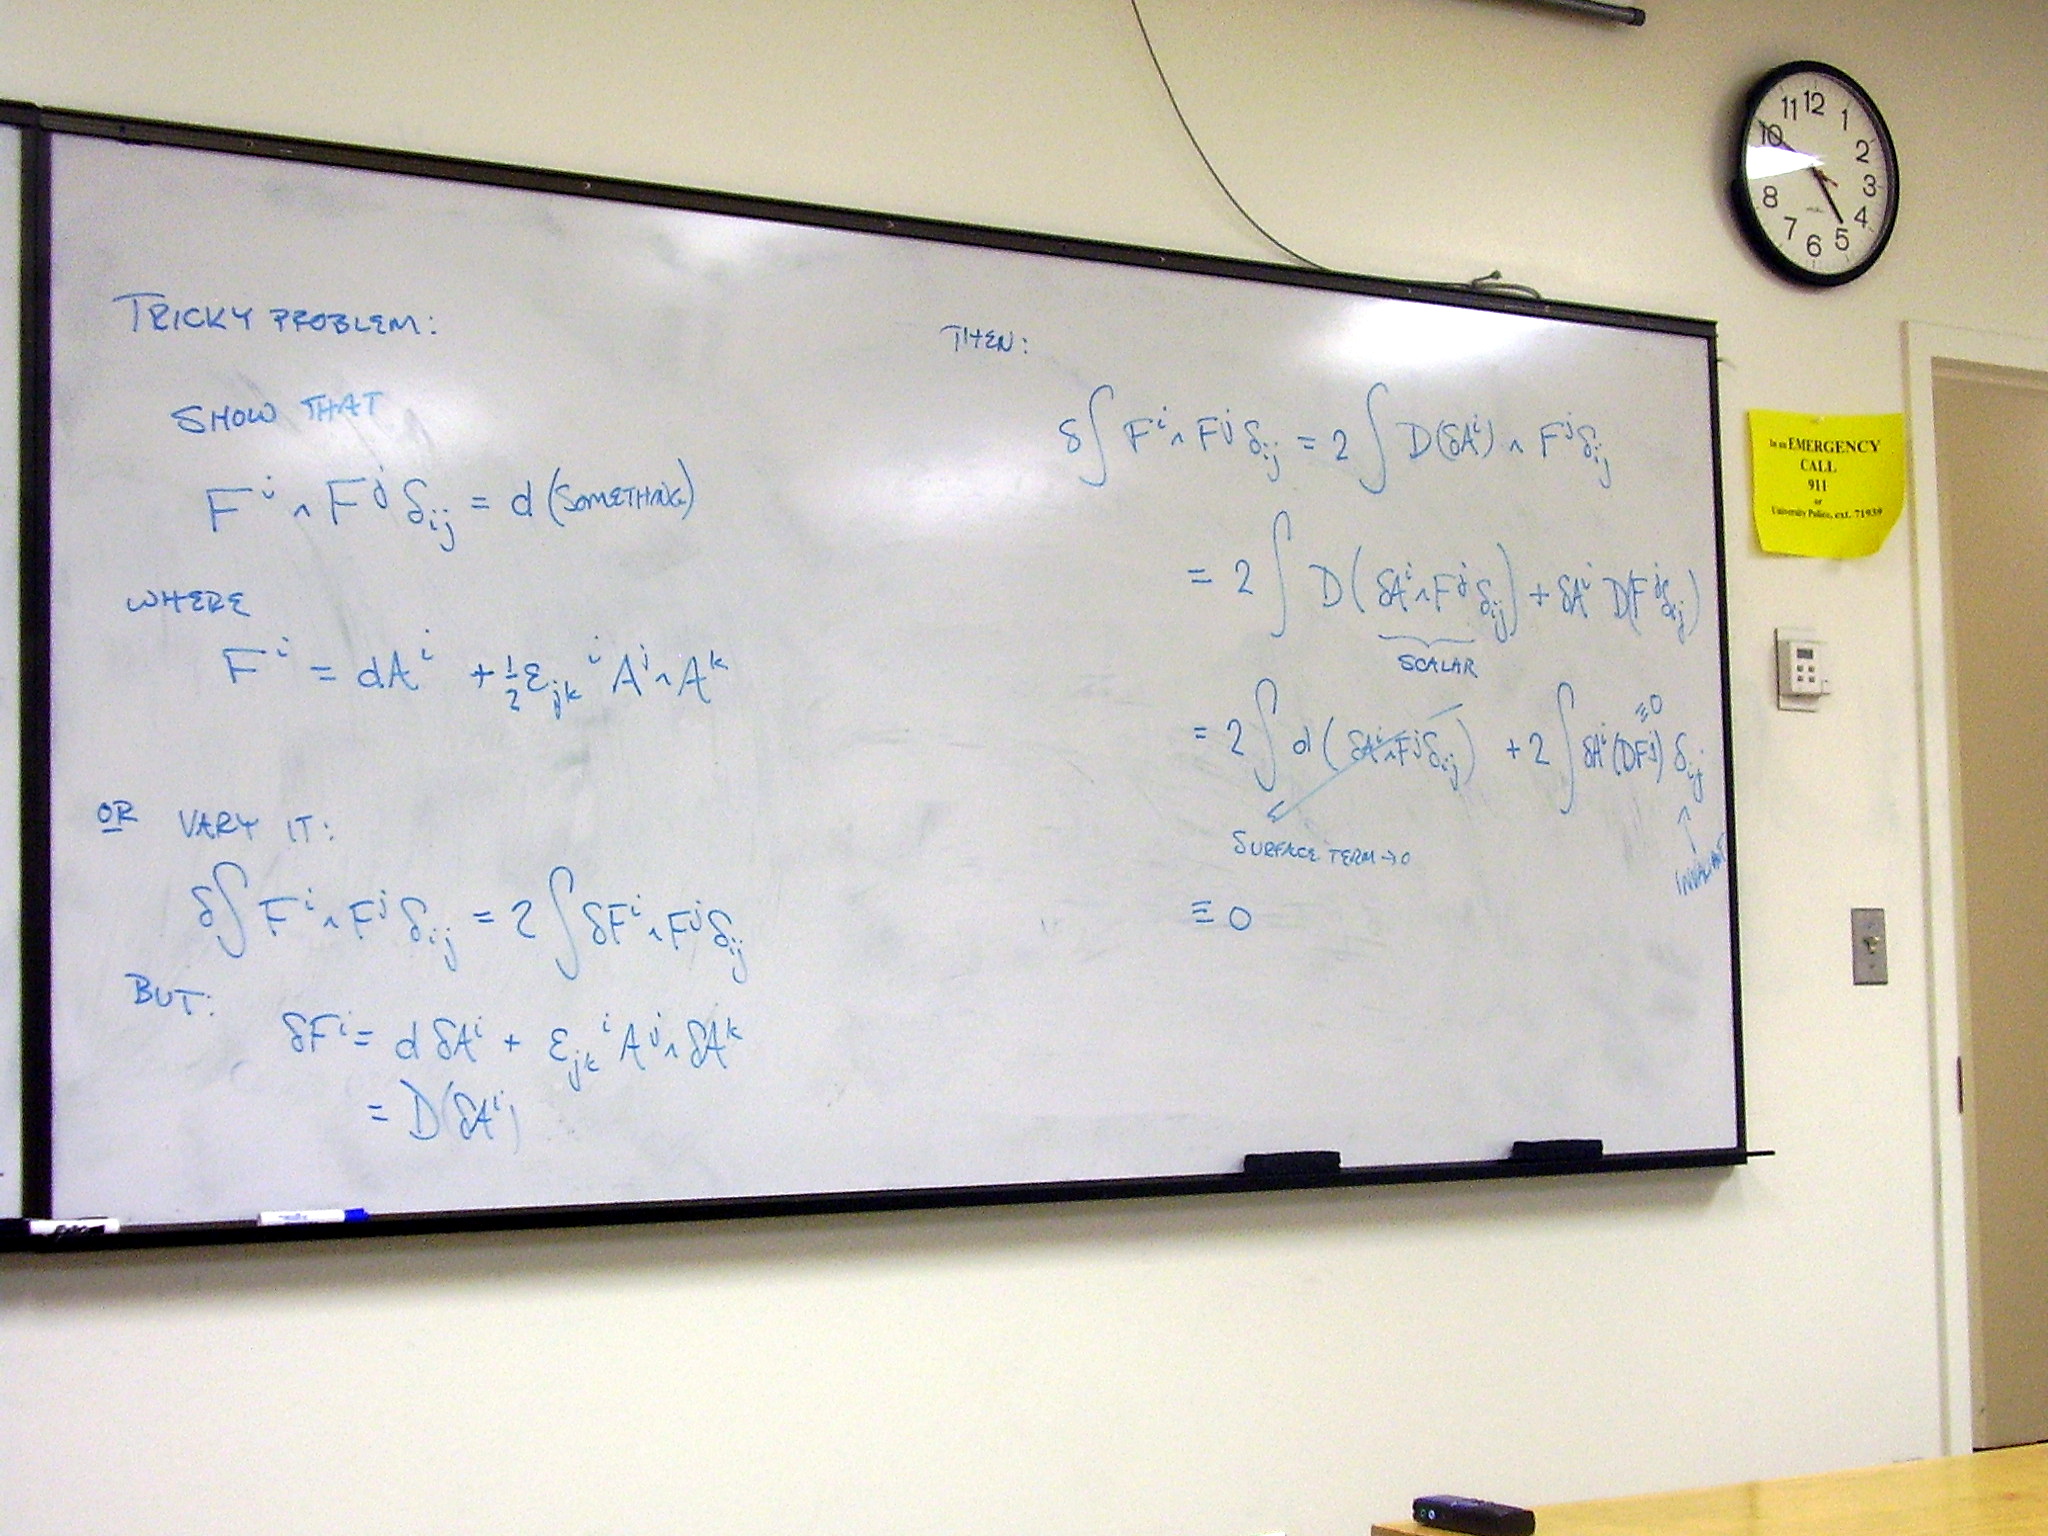 TRICKY PROBLEM:
SHOW THAT
F^i ∧ F^j δ_ij = d (SOMETHING)
WHERE
F^i = dA^i + ½ ε_jk^i A^j ∧ A^k
OR VARY IT:
δ∫ F^i ∧ F^j δ_ij = 2 ∫ δF^i ∧ F^j δ_ij
BUT:
δF^i = d δA^i + ε_jk^i A^j ∧ δA^k
= D(δA^i)
THEN:
δ∫ F^i ∧ F^j δ_ij = 2 ∫ D(δA^i) ∧ F^j δ_ij
= 2 ∫ D(δA^i ∧ F^j δ_ij) + δA^i D(F^j δ_ij)
SCALAR
= 2 ∫ d(δA^i ∧ F^j δ_ij) + 2 ∫ δA^i (DF^j) δ_ij
≡0
SURFACE TERM → 0
INVARIANT
≡ 0
11 12 1
10 2
3
8 4
7 6 5
In an EMERGENCY
CALL
911
or
University Police, ext. 71939